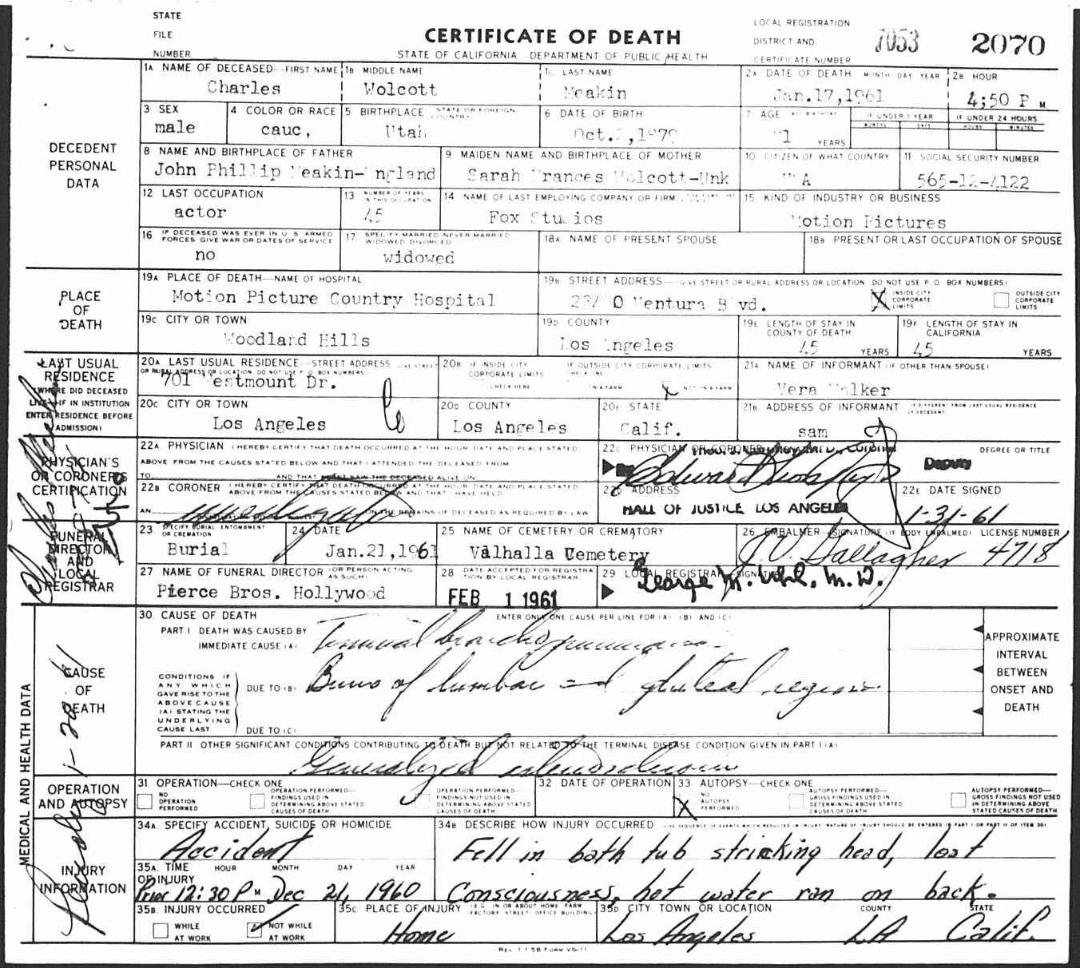 STATE
FILE
NUMBER
CERTIFICATE OF DEATH
STATE OF CALIFORNIA—DEPARTMENT OF PUBLIC HEALTH
LOCAL REGISTRATION
DISTRICT AND
CERTIFICATE NUMBER
7053 2070
DECEDENT
PERSONAL
DATA
1A NAME OF DECEASED—FIRST NAME
Charles
1B MIDDLE NAME
Wolcott
1C LAST NAME
Meakin
2A DATE OF DEATH MONTH DAY YEAR
Jan.17,1961
2B HOUR
4;50 P M
3 SEX
male
4 COLOR OR RACE
cauc,
5 BIRTHPLACE STATE OR FOREIGN COUNTRY
Utah
6 DATE OF BIRTH
Oct.
7 AGE
YEARS
IF UNDER 1 YEAR
MONTHS DAYS
IF UNDER 24 HOURS
HOURS MINUTES
8 NAME AND BIRTHPLACE OF FATHER
John Phillip Meakin-England
9 MAIDEN NAME AND BIRTHPLACE OF MOTHER
Sarah Frances Wolcott-Unk
10 CITIZEN OF WHAT COUNTRY
USA
11 SOCIAL SECURITY NUMBER
565-12-4122
12 LAST OCCUPATION
actor
13 NUMBER OF YEARS IN THIS OCCUPATION
45
14 NAME OF LAST EMPLOYING COMPANY OR FIRM
Fox Studios
15 KIND OF INDUSTRY OR BUSINESS
Motion Pictures
16 IF DECEASED WAS EVER IN U. S. ARMED FORCES GIVE WAR OR DATES OF SERVICE
no
17 SPECIFY MARRIED NEVER MARRIED WIDOWED DIVORCED
widowed
18A NAME OF PRESENT SPOUSE
18B PRESENT OR LAST OCCUPATION OF SPOUSE
PLACE
OF
DEATH
19A PLACE OF DEATH—NAME OF HOSPITAL
Motion Picture Country Hospital
19B STREET ADDRESS—(GIVE STREET OR RURAL ADDRESS OR LOCATION DO NOT USE P. O. BOX NUMBERS)
Ventura Blvd.
INSIDE CITY CORPORATE LIMITS
OUTSIDE CITY CORPORATE LIMITS
19C CITY OR TOWN
Woodland Hills
19D COUNTY
Los Angeles
19E LENGTH OF STAY IN COUNTY OF DEATH
45 YEARS
19F LENGTH OF STAY IN CALIFORNIA
45 YEARS
LAST USUAL
RESIDENCE
(WHERE DID DECEASED
LIVE—IF IN INSTITUTION
ENTER RESIDENCE BEFORE
ADMISSION)
20A LAST USUAL RESIDENCE—STREET ADDRESS
OR RURAL ADDRESS OR LOCATION DO NOT USE P O BOX NUMBERS
701 Westmount Dr.
20B IF INSIDE CITY CORPORATE LIMITS CHECK HERE
IF OUTSIDE CITY CORPORATE LIMITS
21A NAME OF INFORMANT (IF OTHER THAN SPOUSE)
Vera Walker
20C CITY OR TOWN
Los Angeles
20D COUNTY
Los Angeles
20E STATE
Calif.
21B ADDRESS OF INFORMANT
sam
PHYSICIAN'S
OR CORONER'S
CERTIFICATION
22A PHYSICIAN I HEREBY CERTIFY THAT DEATH OCCURRED AT THE HOUR DATE AND PLACE STATED
ABOVE FROM THE CAUSES STATED BELOW AND THAT I ATTENDED THE DECEASED FROM
TO AND THAT I LAST SAW THE DECEASED ALIVE ON
22B CORONER I HEREBY CERTIFY THAT DEATH OCCURRED AT THE HOUR DATE AND PLACE STATED
ABOVE FROM THE CAUSES STATED BELOW AND THAT I HAVE HELD
AN ON THE REMAINS OF DECEASED AS REQUIRED BY LAW
22C PHYSICIAN OR CORONER
DEGREE OR TITLE
Deputy
22D ADDRESS
HALL OF JUSTICE LOS ANGELES
22E DATE SIGNED
1-31-61
FUNERAL
DIRECTOR
AND
LOCAL
REGISTRAR
23 SPECIFY BURIAL ENTOMBMENT OR CREMATION
Burial
24 DATE
Jan.21,1961
25 NAME OF CEMETERY OR CREMATORY
Valhalla Cemetery
26 EMBALMER—SIGNATURE (IF BODY EMBALMED) LICENSE NUMBER
J.V. Gallagher 4718
27 NAME OF FUNERAL DIRECTOR (OR PERSON ACTING AS SUCH)
Pierce Bros. Hollywood
28 DATE ACCEPTED FOR REGISTRATION BY LOCAL REGISTRAR
FEB 1 1961
29 LOCAL REGISTRAR SIGNATURE
George M. Uhl. M. D.
MEDICAL AND HEALTH DATA
CAUSE
OF
DEATH
30 CAUSE OF DEATH ENTER ONLY ONE CAUSE PER LINE FOR (A) (B) AND (C)
PART I DEATH WAS CAUSED BY
IMMEDIATE CAUSE (A)
Terminal bronchopneumonia
CONDITIONS IF ANY WHICH GAVE RISE TO THE ABOVE CAUSE (A) STATING THE UNDERLYING CAUSE LAST
DUE TO (B) Burns of lumbar and gluteal regions
DUE TO (C)
APPROXIMATE
INTERVAL
BETWEEN
ONSET AND
DEATH
PART II OTHER SIGNIFICANT CONDITIONS CONTRIBUTING TO DEATH BUT NOT RELATED TO THE TERMINAL DISEASE CONDITION GIVEN IN PART I (A)
Generalized arteriosclerosis
1-20-61
OPERATION
AND AUTOPSY
31 OPERATION—CHECK ONE
NO OPERATION PERFORMED
OPERATION PERFORMED—FINDINGS USED IN DETERMINING ABOVE STATED CAUSES OF DEATH
32 DATE OF OPERATION
33 AUTOPSY—CHECK ONE
NO AUTOPSY PERFORMED
AUTOPSY PERFORMED—GROSS FINDINGS NOT USED IN DETERMINING ABOVE STATED CAUSES OF DEATH
INJURY
INFORMATION
34A SPECIFY ACCIDENT, SUICIDE OR HOMICIDE
Accident
34B DESCRIBE HOW INJURY OCCURRED
Fell in bath tub stricking head, lost
Consciousness, hot water ran on back.
35A TIME OF INJURY HOUR MONTH DAY YEAR
Prior 12:30 P M Dec 21, 1960
35B INJURY OCCURRED
WHILE AT WORK
NOT WHILE AT WORK
35C PLACE OF INJURY (E.G. IN OR ABOUT HOME FARM FACTORY STREET OFFICE BUILDING)
Home
35D CITY TOWN OR LOCATION COUNTY STATE
Los Angeles LA Calif.